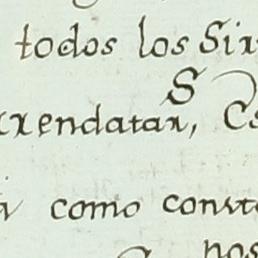 todos los Sir
S
rrendatar, Co
como consta
nos